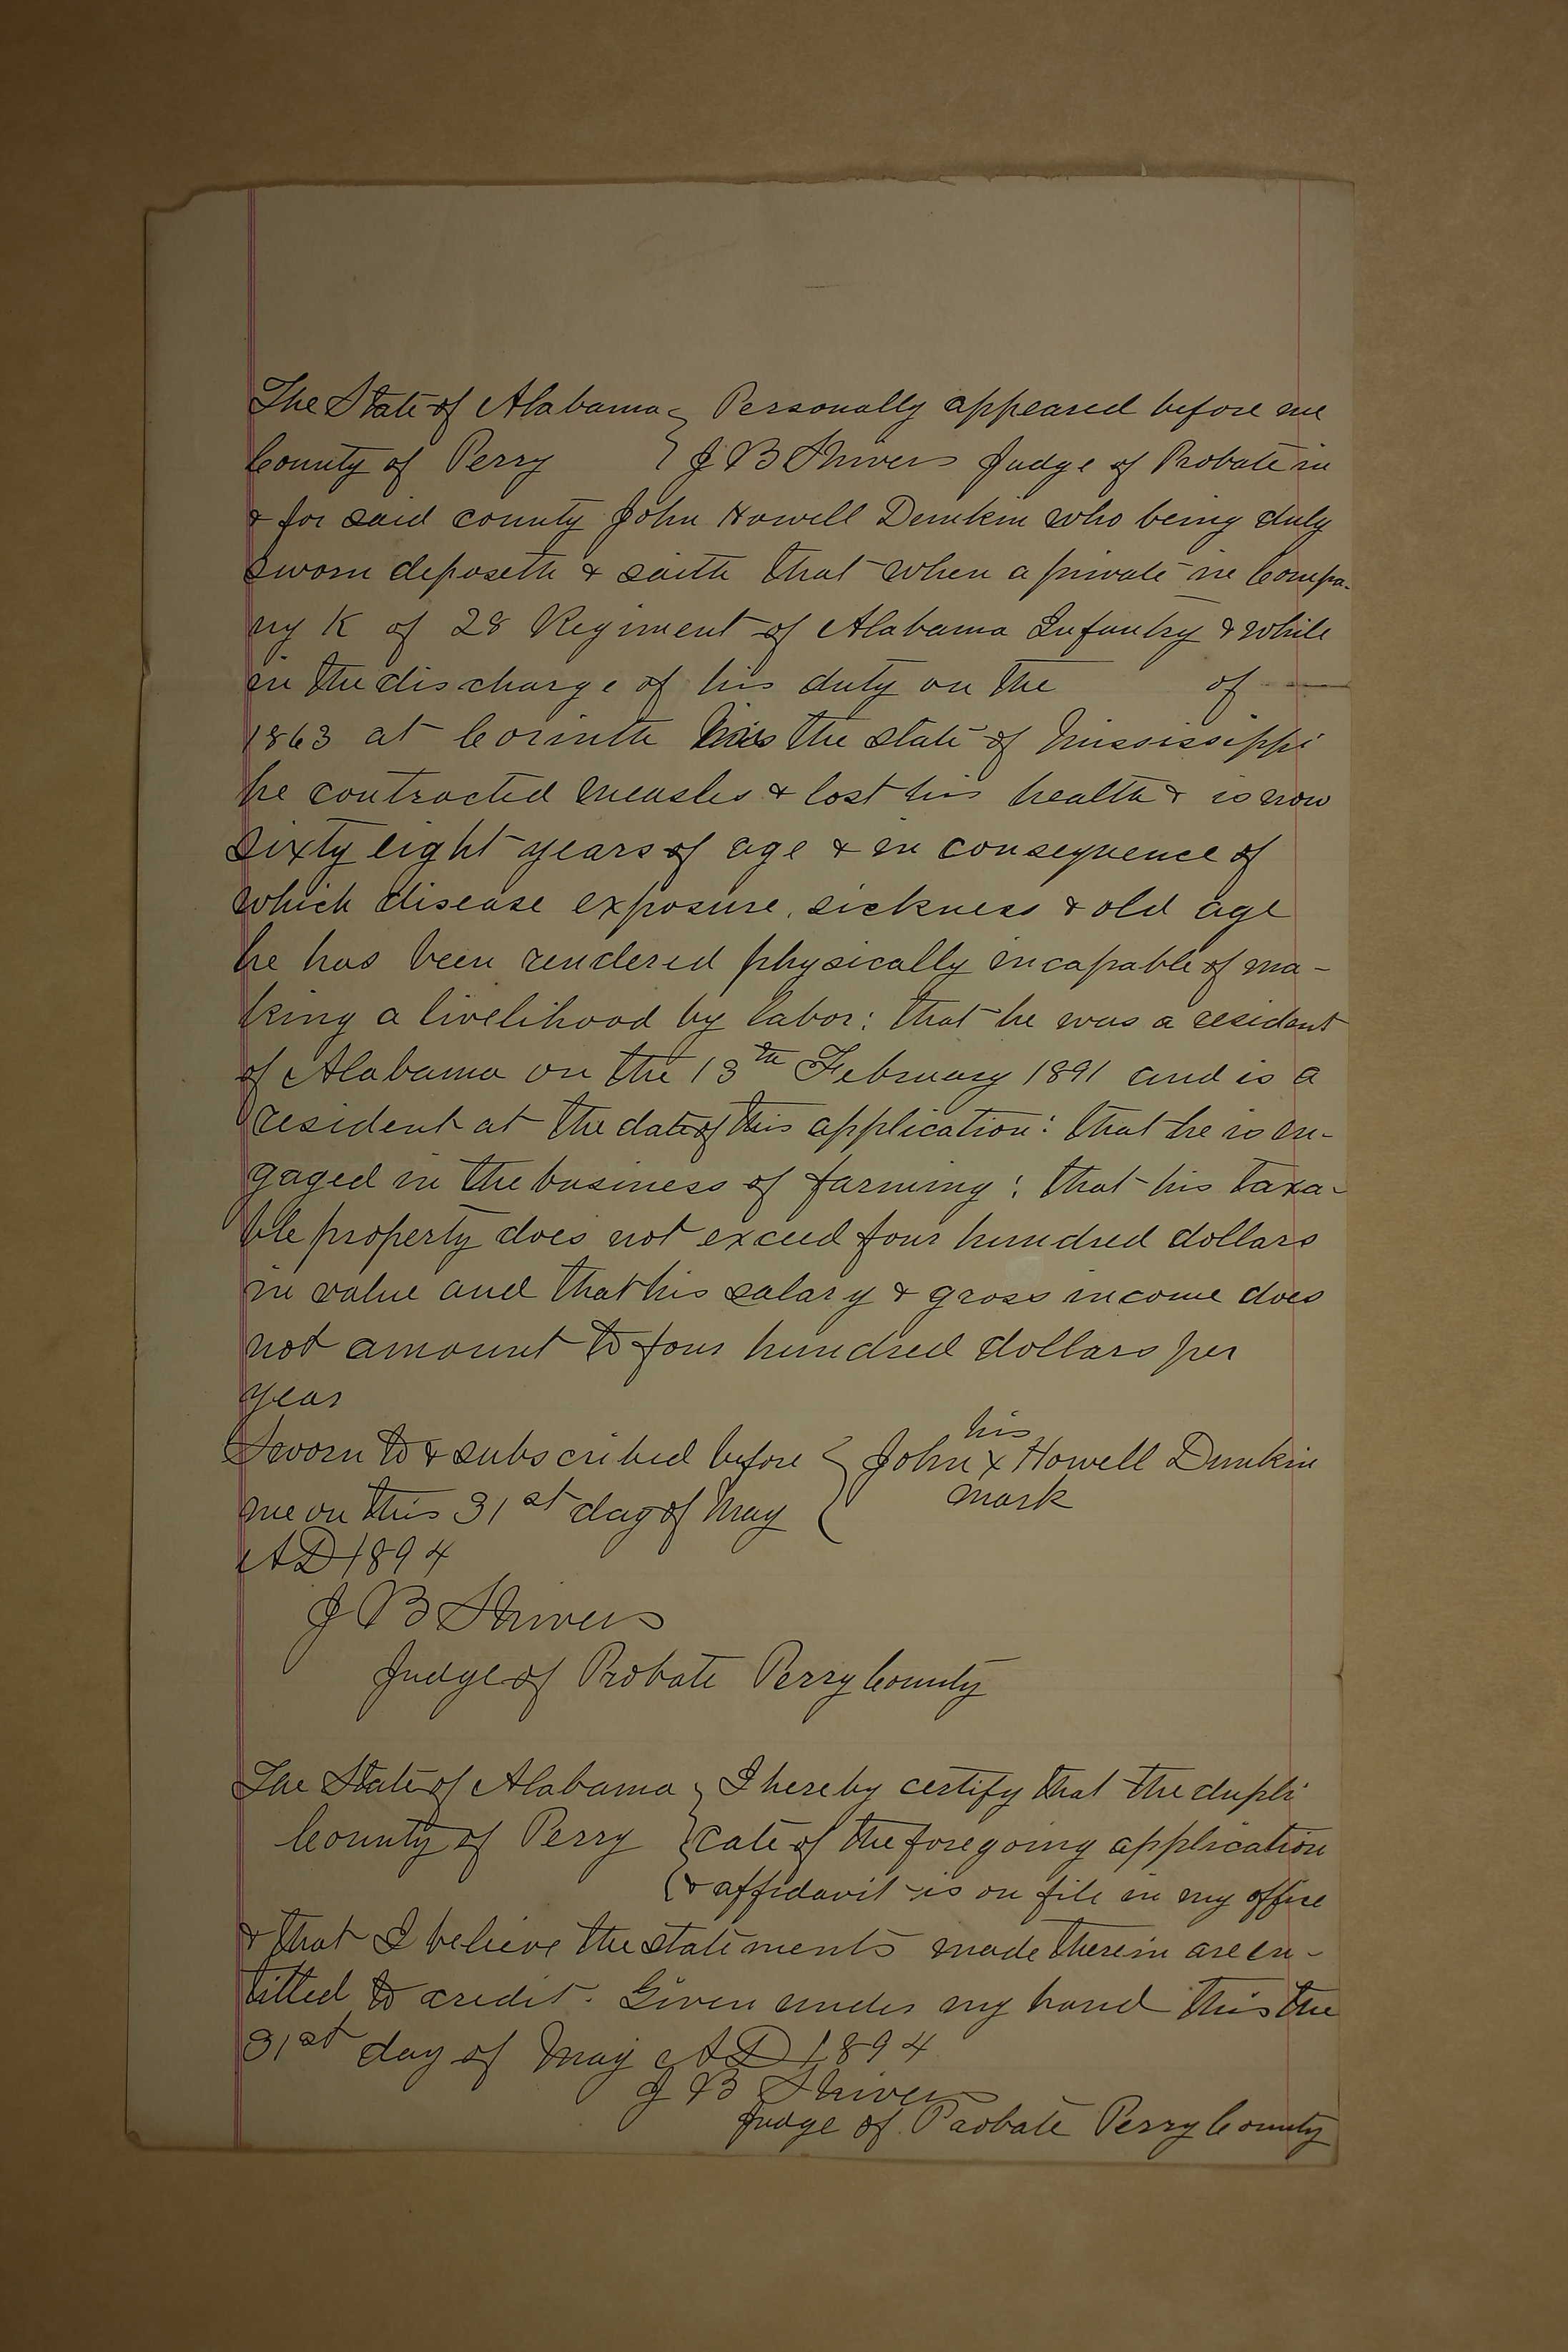 The State of Alabama } Personally appeared before me
County of Perry } J B Shivers Judge of Probate in
& for said county John Howell Dunkin who being duly
sworn deposeth & saith that when a private in Compa-
ny K of 28 Regiment of Alabama Infantry & while
in the discharge of his duty on the of —
1863 at Corinth the state of Mississippi
he contracted measles & lost his health & is now
sixty eight years of age & in consequence of
which disease exposure, sickness & old age
he has been rendered physically incapable of ma-
king a livelihood by labor: that he was a resident
of Alabama on the 13th February 1891 and is a
resident at the date of this application: that he is en-
gaged in the business of farming: that his taxa-
ble property does not exceed four hundred dollars
in value and that his salary & gross income does
not amount to four hundred dollars per
year
Sworn to & subscribed before } his
John x Howell Dunkin
me on this 31st day of May } mark
AD 1894
J B Shivers
Judge of Probate Perry County
The State of Alabama } I hereby certify that the dupli
County of Perry } cate of the foregoing application
& affidavit is on file in my office
& that I believe the statements made therein are en-
titled to credit. Given under my hand this the
31st day of May AD 1894
J B Shivers
Judge of Probate Perry County